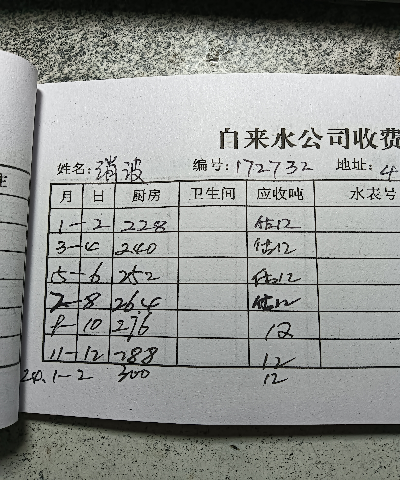 自来水公司收费
姓名: 波 编号: 172732 地址: 4
月 日 厨房 卫生间 应收吨 水表号
1-2 228 估12
3-4 240 估12
5-6 252 估12
7-8 264 估12
9-10 276 12
11-12 288 12
24.1-2 300 12